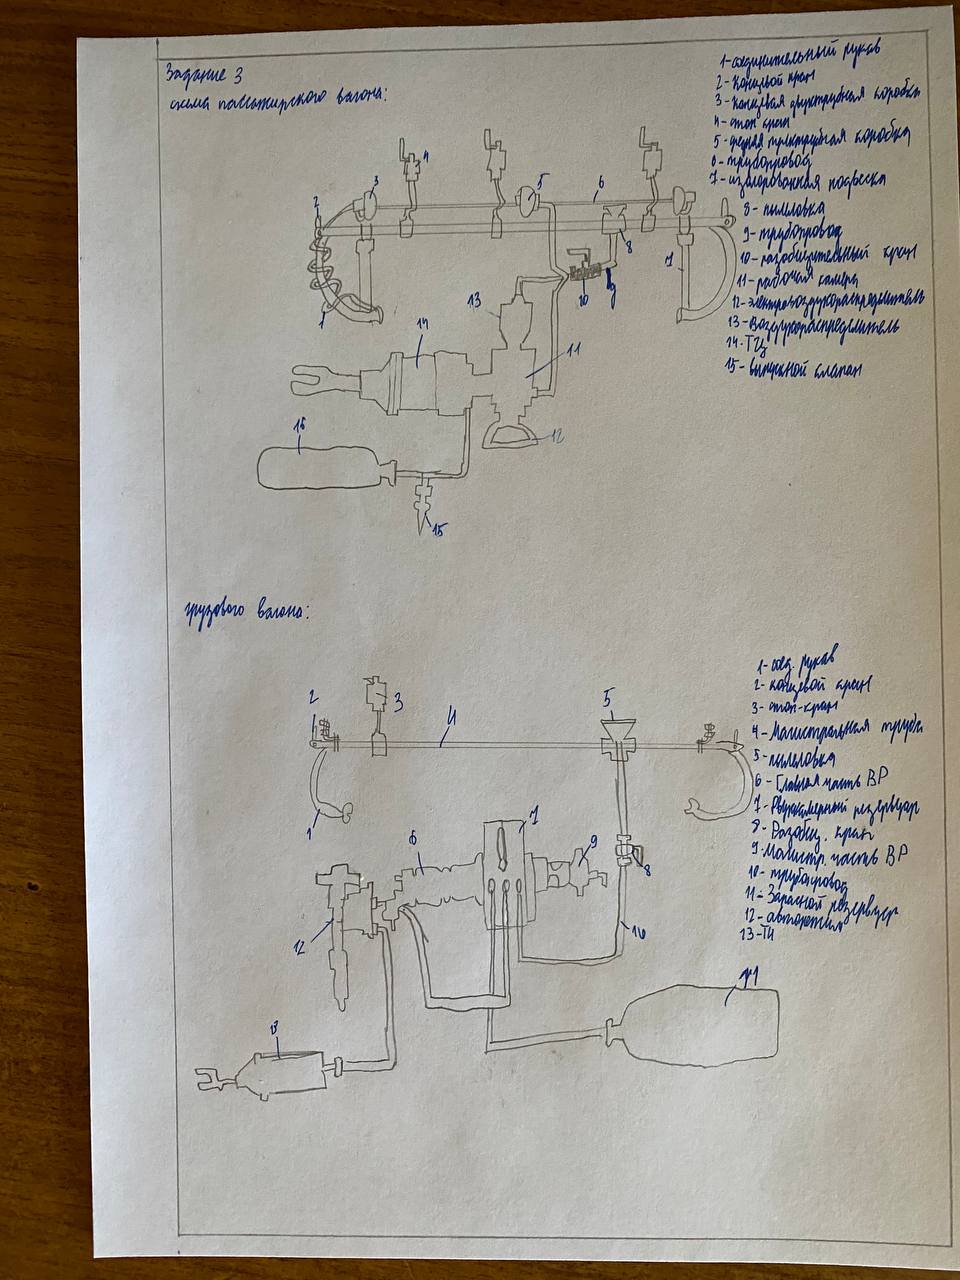 Задание 3
схема пассажирского вагона:
1-соединительный рукав
2-концевой кран
3-концевая двухтрубная коробка
4-стоп кран
5-средняя трехтрубная коробка
6-трубопровод
7-изолированная подвеска
8-пылеловка
9-трубопровод
10-разобщительный кран
11-рабочая камера
12-электровоздухораспределитель
13-Воздухораспределитель
14-ТЦ
15-выпускной клапан
2
3
4
5
6
8
7
1
10
9
13
14
11
12
16
15
грузового вагона:
1-соед. рукав
2-концевой кран
3-стоп-кран
4-Магистральная труба
5-пылеловка
6-Главная часть ВР
7-Двухкамерный резервуар
8-Разобщ. кран
9-Магистр. часть ВР
10-трубопровод
11-Запасной резервуар
12-авторежим
13-ТЦ
2
3
4
5
1
6
7
9
8
12
10
11
13